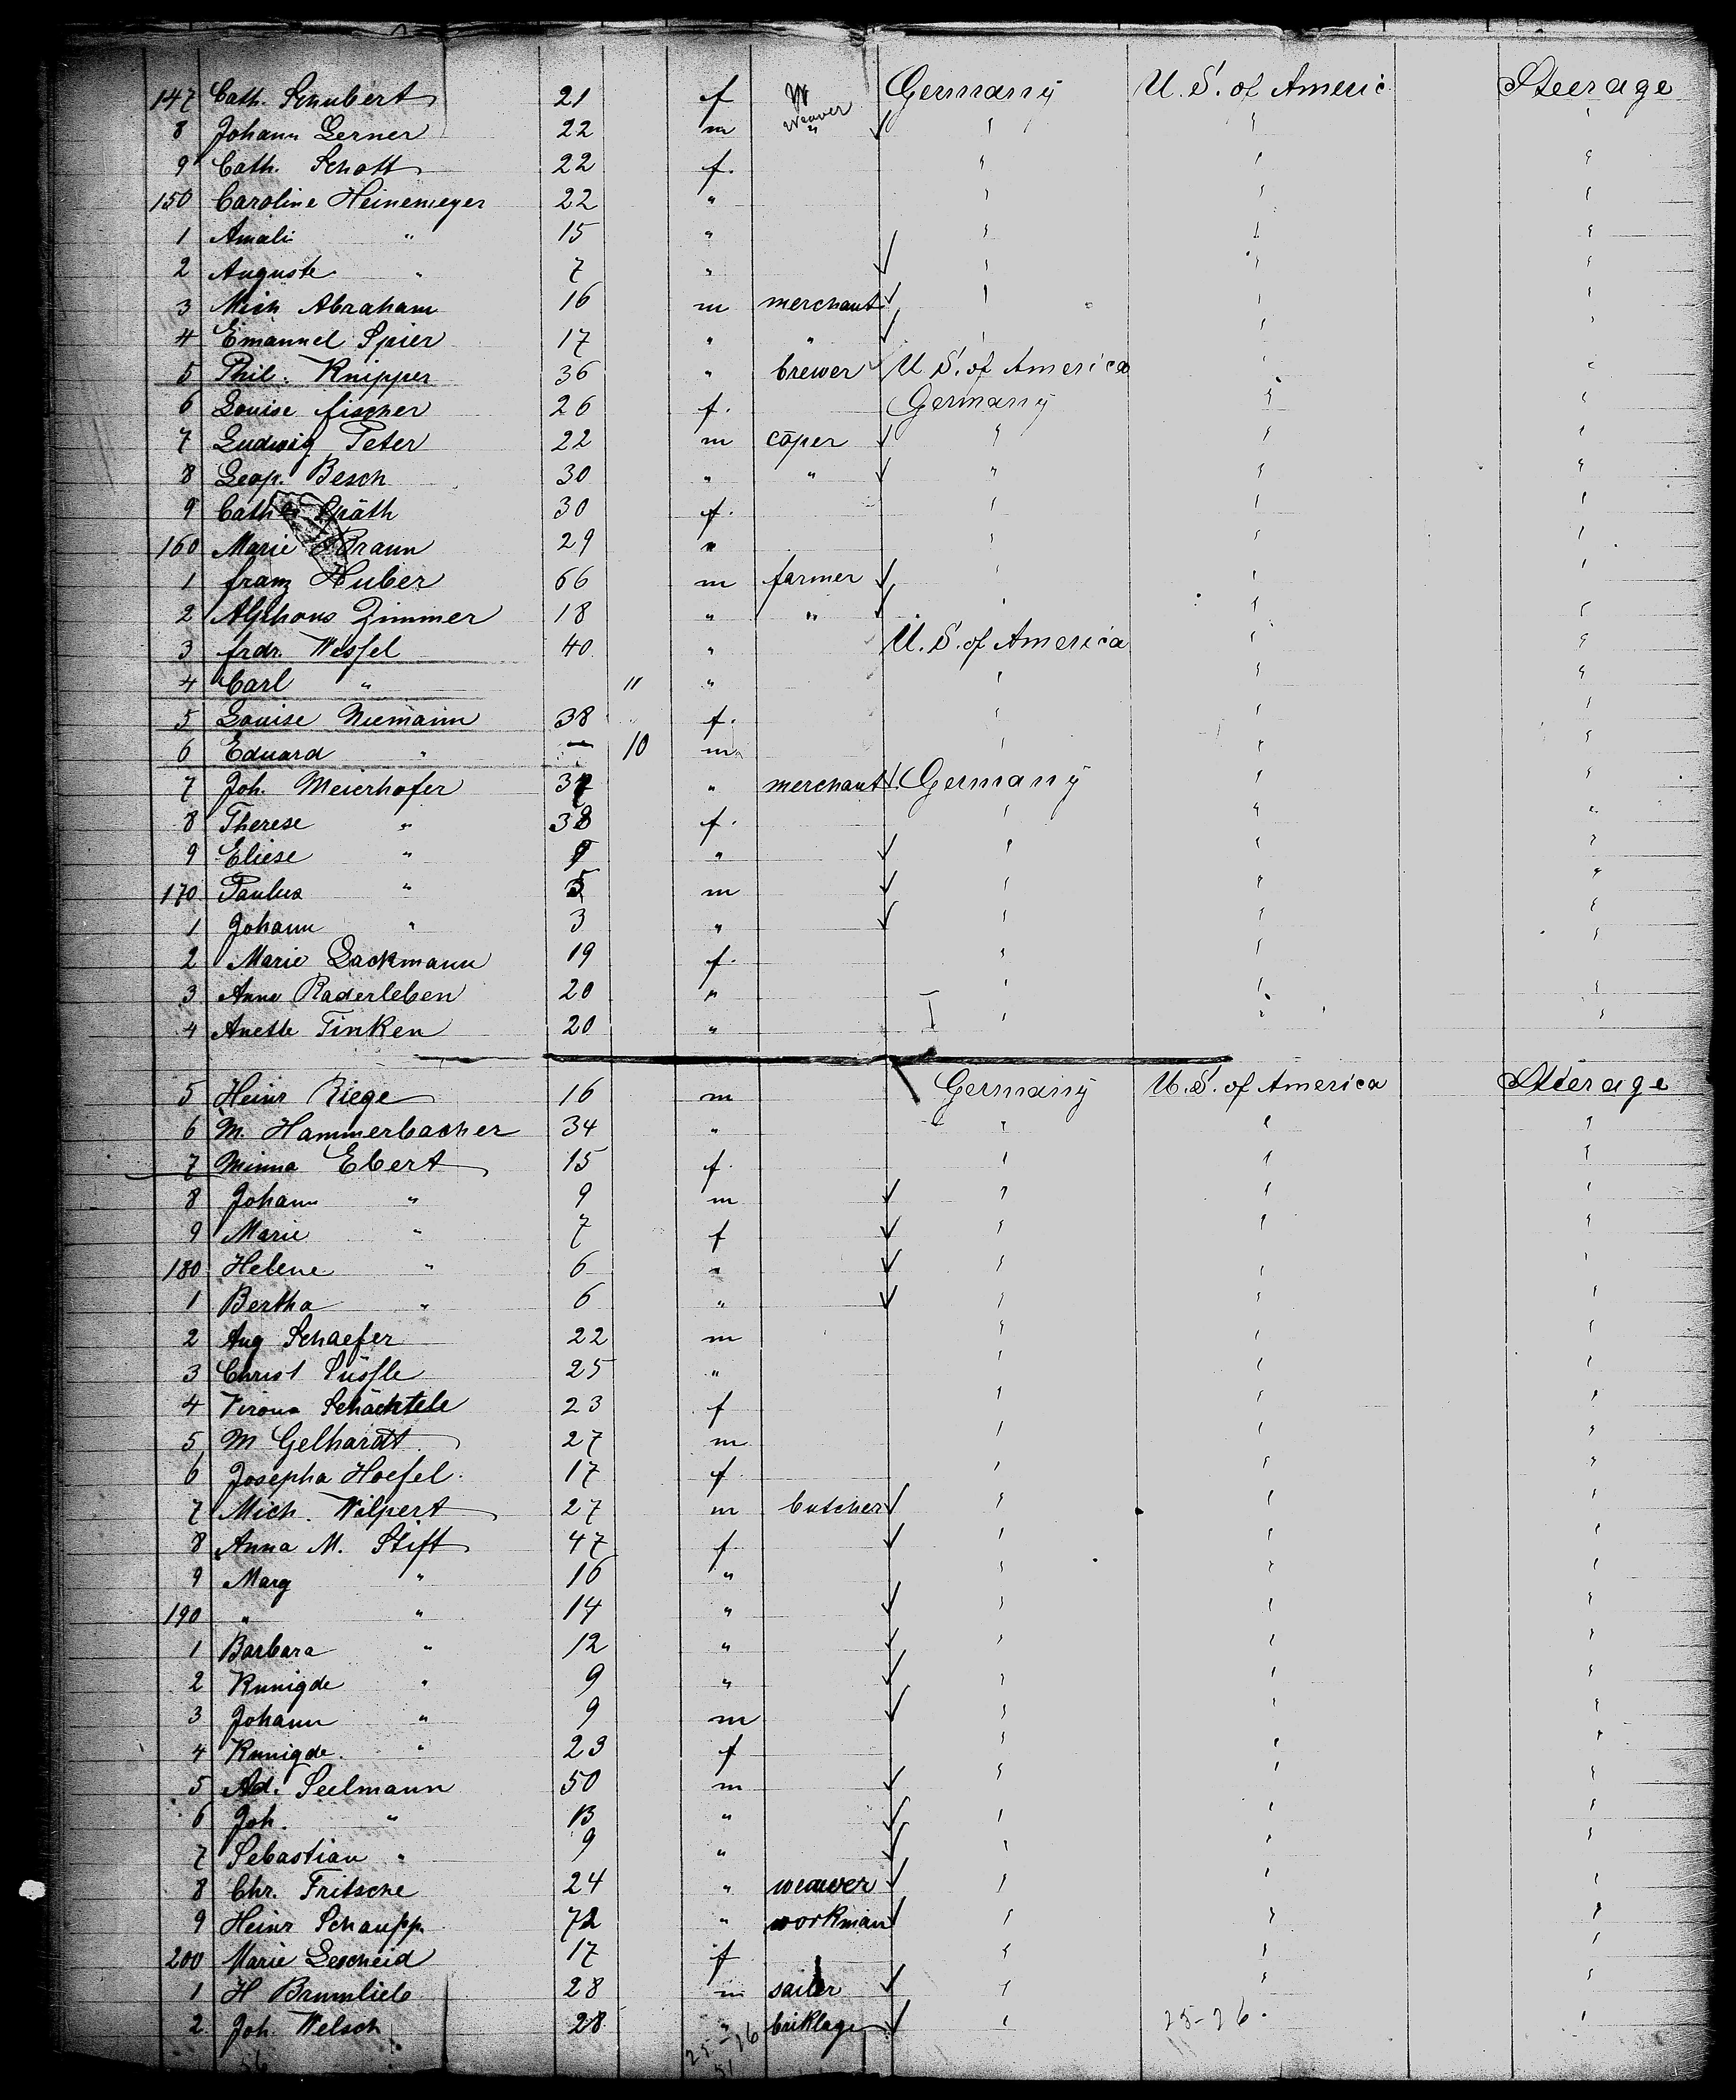 147 Cath. Schubert 21 f Weaver Germany U. S. of Americ Steerage
8 Johann Lerner 22 m " " " "
9 Cath. Schott 22 f. " " "
150 Caroline Heinemeyer 22 " " " "
1 Amali " 15 " " " "
2 Auguste " 7 " " " "
3 Mich Abraham 16 m merchant " " "
4 Emanuel Spier 17 " " " " "
5 Phil. Knipper 36 " brewer U. S. of America " "
6 Louise fischer 26 f. Germany " "
7 Ludwig Peter 22 m cöper " " "
8 Leop. Besch 30 " " " " "
9 Cath Späth 30 f. " " "
160 Marie Braun 29 " " " "
1 franz Huber 66 m farmer " " "
2 Alphons Zimmer 18 " " " " "
3 frdr. Wessel 40 " U. S. of America " "
4 Carl " 11 " " " "
5 Louise Niemann 38 f. " " "
6 Eduard " — 10 m " " "
7 Joh. Meierhofer 37 " merchant Germany " "
8 Therese " 38 f. " " "
9 Eliese " " " " "
170 Paulus " 5 m " " "
1 Johann " 3 " " " "
2 Marie Lackmann 19 f. " " "
3 Anna Raderleben 20 " " " "
4 Anette Tinken 20 " " " "
5 Heinr Riege 16 m Germany U. S. of America Steerage
6 M. Hammerbacher 34 " " " "
7 Minna Ebert 15 f. " " "
8 Johann " 9 m " " "
9 Marie " 7 f " " "
180 Helene " 6 " " " "
1 Bertha " 6 " " " "
2 Aug Schaefer 22 m " " "
3 Christ Süssle 25 " " " "
4 Verona Schächtele 23 f " " "
5 M Gelhardt 27 m " " "
6 Josepha Hoefel 17 f " " "
7 Mich. Wilpert 27 m butcher " " "
8 Anna M. Stift 47 f " " "
9 Marg " 16 " " " "
190 " " 14 " " " "
1 Barbara " 12 " " " "
2 Kunigde " 9 " " " "
3 Johann " 9 m " " "
4 Kunigde " 23 f " " "
5 Ad. Seelmann 50 m " " "
6 Joh. " 13 " " " "
7 Sebastian " 9 " " " "
8 Chr. Fritsche 24 " weawer " " "
9 Heinr Schaupp 72 " workman " " "
200 Marie Lescheid 17 f " " "
1 H Brumlieb 28 m sailer " " "
2 Joh. Welsch 28 " briklage " 25-26 "
25-26
51
56